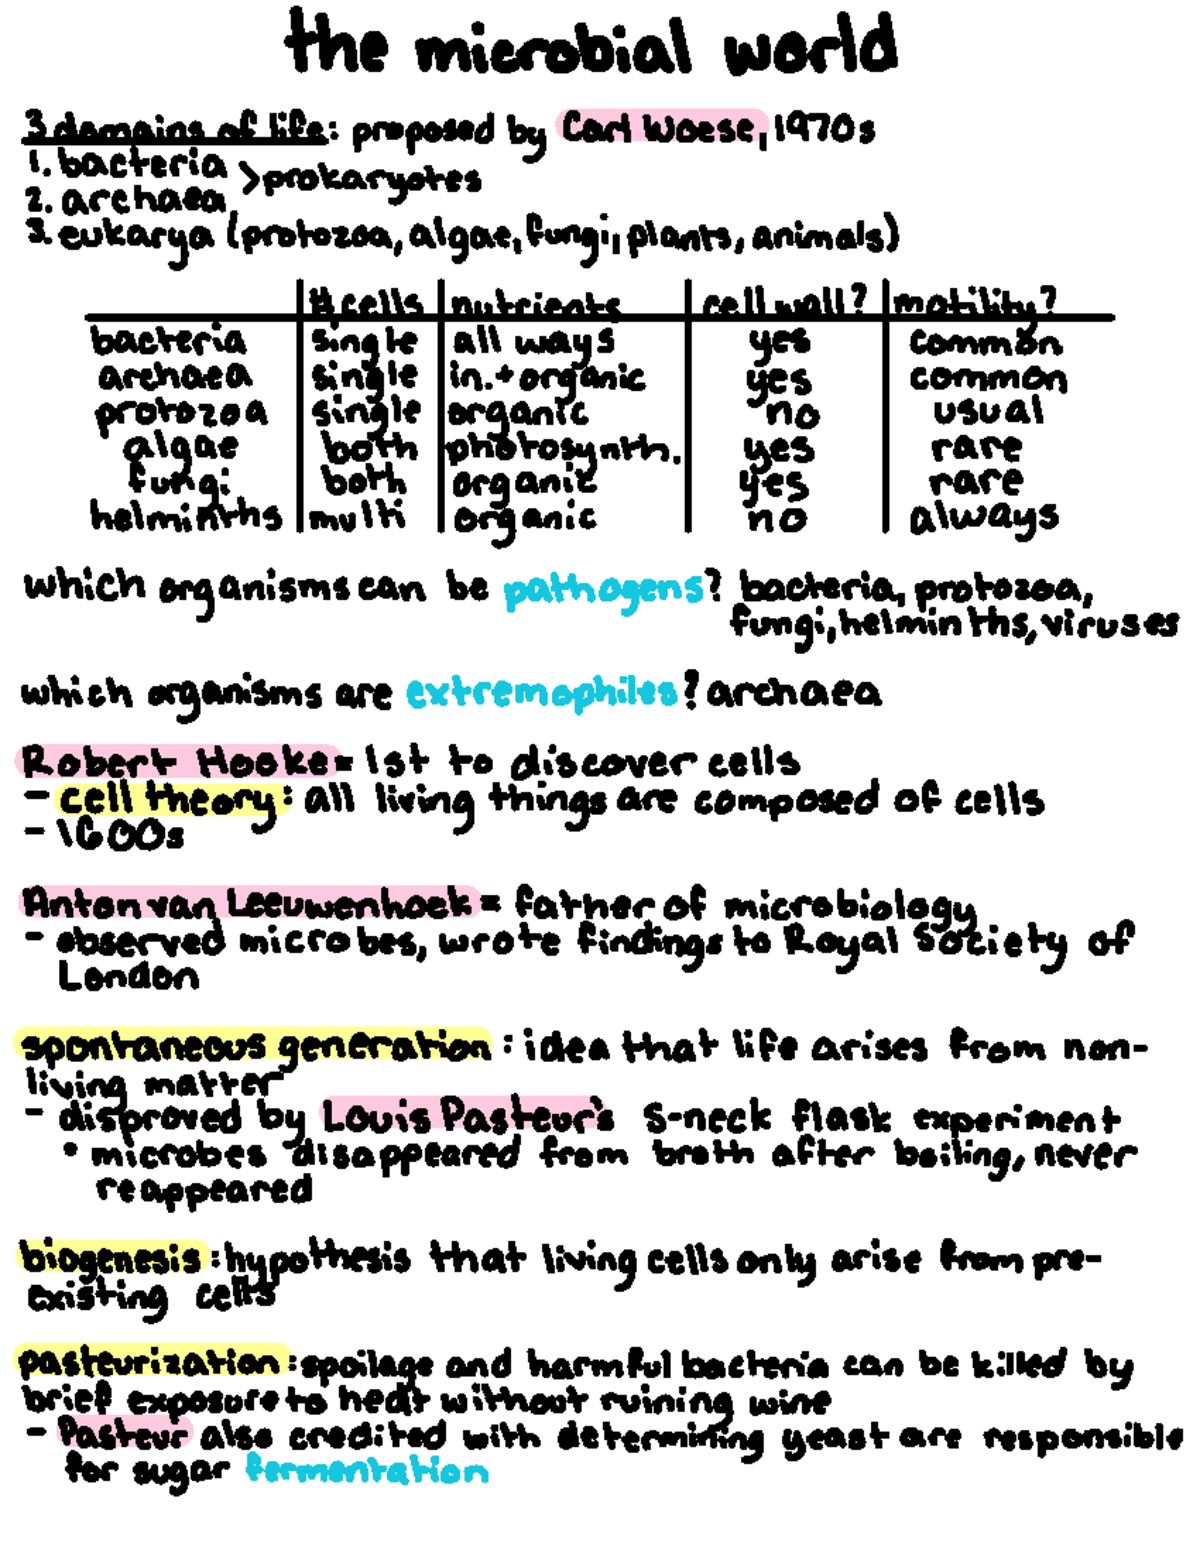 the microbial world
3 domains of life: proposed by Carl Woese, 1970s
1. bacteria
>prokaryotes
2. archaea
3. eukarya (protozoa, algae, fungi, plants, animals)
# cells nutrients cell wall? motility?
bacteria single all ways yes common
archaea single in. + organic yes common
protozoa single organic no usual
algae both photosynth. yes rare
fungi both organic yes rare
helminths multi organic no always
which organisms can be pathogens? bacteria, protozoa,
fungi, helminths, viruses
which organisms are extremophiles? archaea
Robert Hooke = 1st to discover cells
- cell theory: all living things are composed of cells
- 1600s
Anton van Leeuwenhoek = father of microbiology
- observed microbes, wrote findings to Royal Society of
London
spontaneous generation: idea that life arises from non-
living matter
- disproved by Louis Pasteur's S-neck flask experiment
• microbes disappeared from broth after boiling, never
reappeared
biogenesis: hypothesis that living cells only arise from pre-
existing cells
pasteurization: spoilage and harmful bacteria can be killed by
brief exposure to heat without ruining wine
- Pasteur also credited with determining yeast are responsible
for sugar fermentation